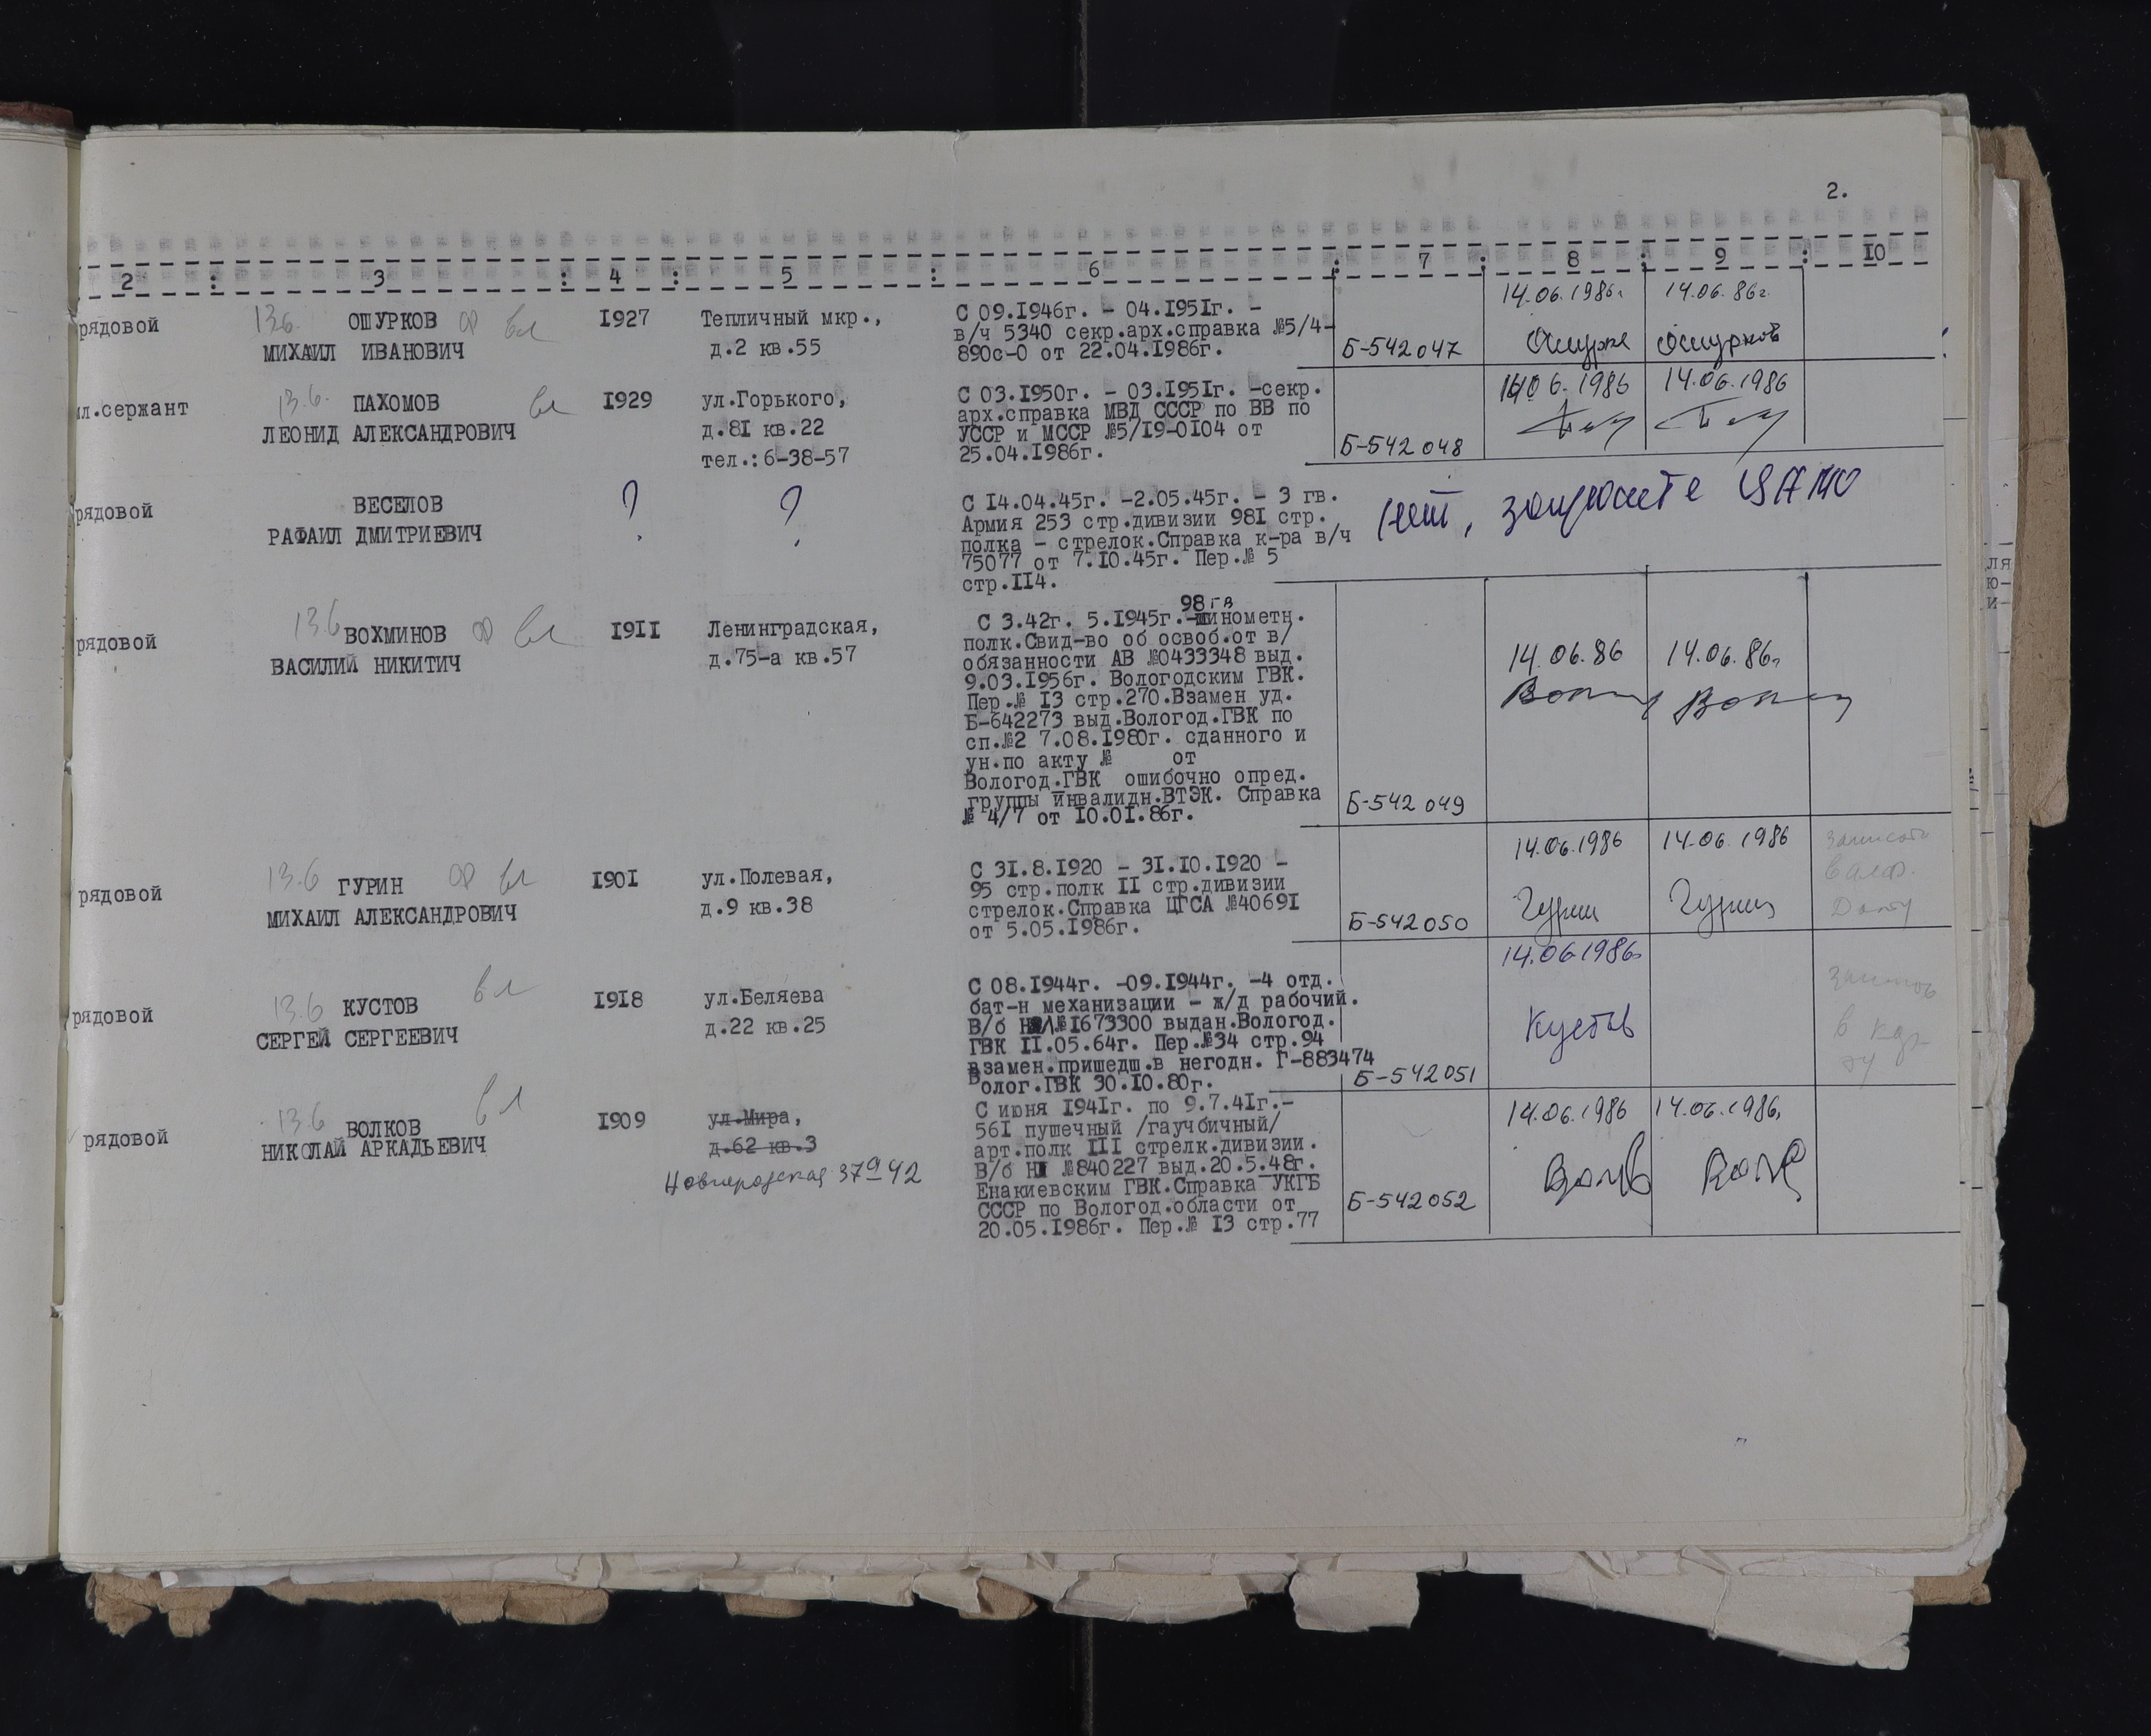 2.
2 : 3 : 4 : 5 : 6 : 7 : 8 : 9 : 10
рядовой
13.6. ОШУРКОВ вл
МИХАИЛ ИВАНОВИЧ
1927
Тепличный мкр.,
д.2 кв.55
С 09.1946г. - 04.1951г. -
в/ч 5340 секр.арх.справка №5/4-
890с-0 от 22.04.1986г.
Б-542047
14.06.1986г.
14.06.86г.
Ошурков
мл.сержант
13.6. ПАХОМОВ вл
ЛЕОНИД АЛЕКСАНДРОВИЧ
1929
ул.Горького,
д.81 кв.22
тел.:6-38-57
С 03.1950г. - 03.1951г. -секр.
арх.справка МВД СССР по ВВ по
УССР и МССР №5/19-0104 от
25.04.1986г.
Б-542048
14.06.1986
14.06.1986
рядовой
ВЕСЕЛОВ
РАФАИЛ ДМИТРИЕВИЧ
?
?
С 14.04.45г. -2.05.45г. - 3 гв.
Армия 253 стр.дивизии 981 стр.
полка - стрелок.Справка к-ра в/ч
75077 от 7.10.45г. Пер.№ 5
стр.114.
нет, запросите ЦАМО
рядовой
13.6 ВОХМИНОВ вл
ВАСИЛИЙ НИКИТИЧ
1911
Ленинградская,
д.75-а кв.57
98 гв
С 3.42г. 5.1945г.-минометн.
полк.Свид-во об освоб.от в/
обязанности АВ №0433348 выд.
9.03.1956г. Вологодским ГВК.
Пер.№ 13 стр.270.Взамен уд.
Б-642273 выд.Вологод.ГВК по
сп.№2 7.08.1980г. сданного и
ун.по акту № от
Вологод.ГВК ошибочно опред.
группы инвалидн.ВТЭК. Справка
№ 4/7 от 10.01.86г.
Б-542049
14.06.86
14.06.86г.
рядовой
13.6 ГУРИН вл
МИХАИЛ АЛЕКСАНДРОВИЧ
1901
ул.Полевая,
д.9 кв.38
С 31.8.1920 - 31.10.1920 -
95 стр.полк 11 стр.дивизии
стрелок.Справка ЦГСА №40691
от 5.05.1986г.
Б-542050
14.06.1986
14.06.1986
Гурин
Гурин
рядовой
13.6 КУСТОВ вл
СЕРГЕЙ СЕРГЕЕВИЧ
1918
ул.Беляева
д.22 кв.25
С 08.1944г. -09.1944г. -4 отд.
бат-н механизации - ж/д рабочий.
В/б №1673300 выдан.Вологод.
ГВК 11.05.64г. Пер.№34 стр.94
взамен.пришедш.в негодн. Г-883474
Волог.ГВК 30.10.80г.
Б-542051
14.06.1986
Кустов
рядовой
13.6 ВОЛКОВ вл
НИКОЛАЙ АРКАДЬЕВИЧ
1909
ул.Мира,
д.62 кв.3
Новгородская 37а 42
С июня 1941г. по 9.7.41г.-
561 пушечный /гаучбичный/
арт.полк 111 стрелк.дивизии.
В/б НI №840227 выд.20.5.48г.
Енакиевским ГВК.Справка УКГБ
СССР по Вологод.области от
20.05.1986г. Пер.№ 13 стр.77
Б-542052
14.06.1986
14.06.1986.